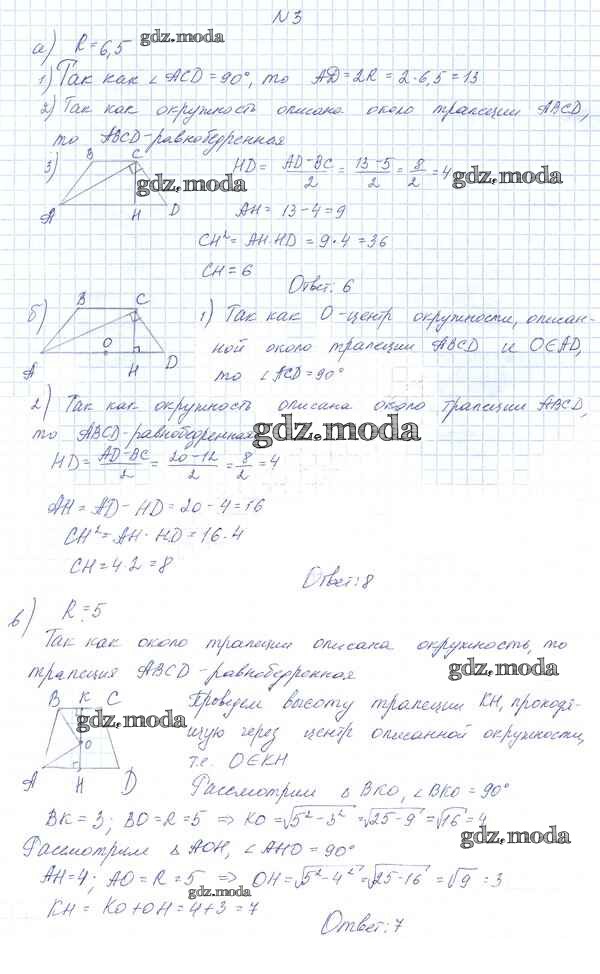 N 3
а) R = 6,5 gdz.moda
1) Так как ∠ACD = 90°, то AD = 2R = 2·6,5 = 13
2) Так как окружность описана около трапеции ABCD,
то ABCD - равнобедренная
3) B C HD = (AD-BC)/2 = (13-5)/2 = 8/2 = 4 gdz.moda
gdz.moda
A H D AH = 13-4 = 9
CH² = AH·HD = 9·4 = 36
CH = 6
Ответ: 6
б) B C 1) Так как O - центр окружности, описан-
ной около трапеции ABCD и O∈AD,
A O H D то ∠ACD = 90°
2) Так как окружность описана около трапеции ABCD,
то ABCD - равнобедренная gdz.moda
HD = (AD-BC)/2 = (20-12)/2 = 8/2 = 4
AH = AD - HD = 20 - 4 = 16
CH² = AH·HD = 16·4
CH = 4·2 = 8
Ответ: 8
в) R = 5
Так как около трапеции описана окружность, то
трапеция ABCD - равнобедренная gdz.moda
B K C Проведем высоту трапеции KH, проходя-
gdz.moda
щую через центр описанной окружности,
O т.е. O∈KH
A H D Рассмотрим △ BKO, ∠BKO = 90°
BK = 3; BO = R = 5 ⇒ KO = √5²-3² = √25-9 = √16 = 4
gdz.moda
Рассмотрим △ AOH, ∠AHO = 90°
AH = 4; AO = R = 5 ⇒ OH = √5²-4² = √25-16 = √9 = 3
gdz.moda
KH = KO + OH = 4 + 3 = 7
Ответ: 7